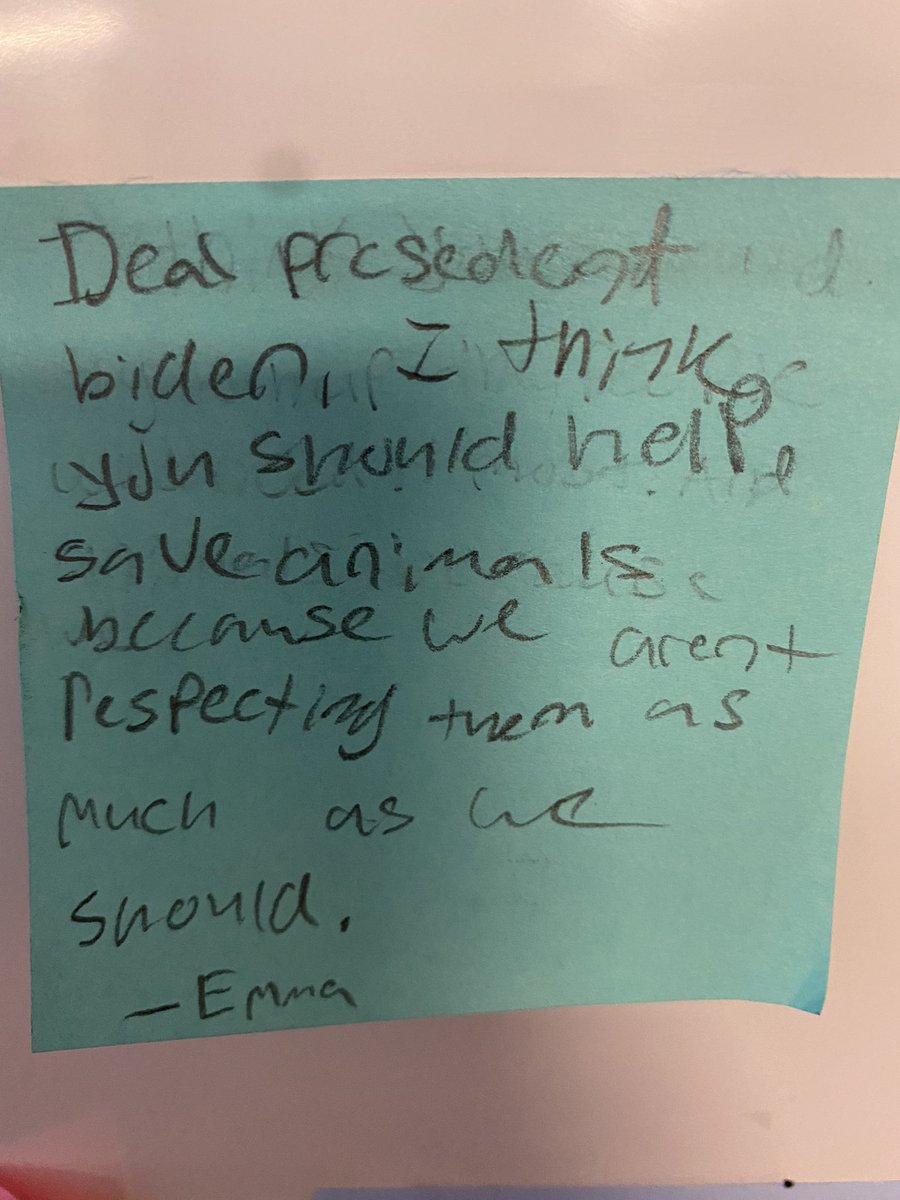 Dear presedent
biden, I think
you should help
save animals
because we arent
respecting them as
much as we
should.
—Emma